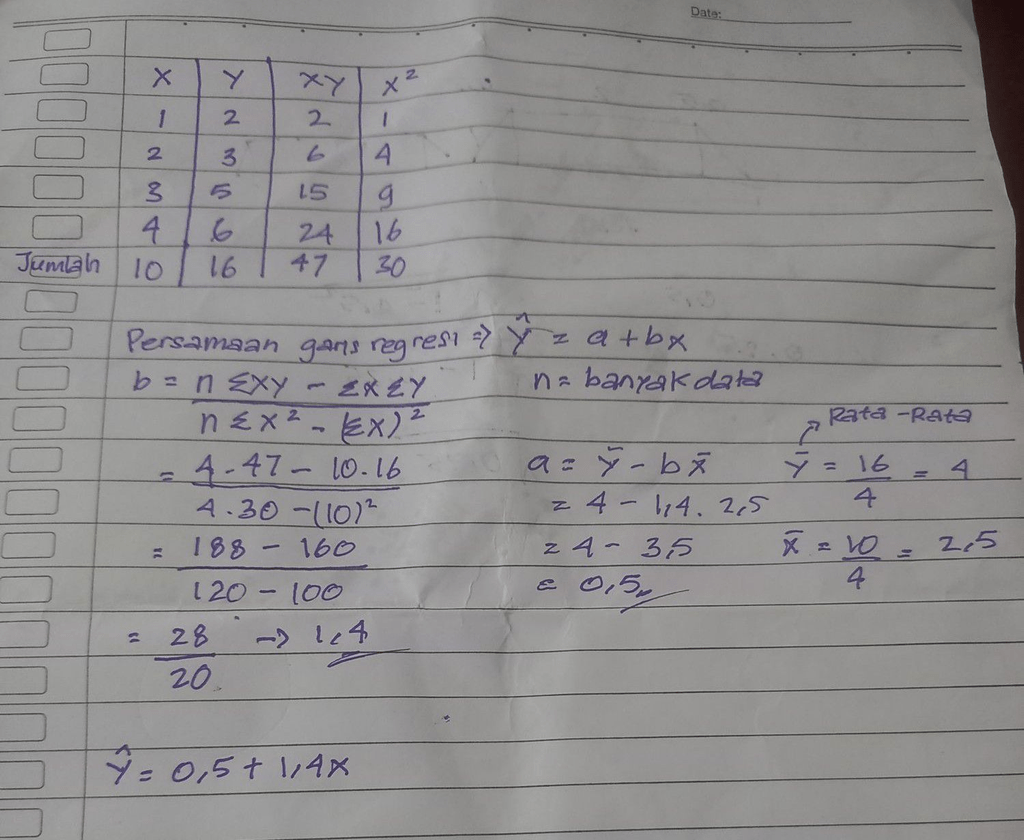 Date:
X Y XY X²
1 2 2 1
2 3 6 4
3 5 15 9
4 6 24 16
Jumlah 10 16 47 30
Persamaan garis regresi => Ŷ = a + bx
b = n ΣXY - ΣXΣY / n ΣX² - (ΣX)²
n = banyak data
= 4.47 - 10.16 / 4.30 - (10)²
= 188 - 160 / 120 - 100
= 28 / 20 -> 1,4
a = Ȳ - b X̄
= 4 - 1,4. 2,5
= 4 - 3,5
= 0,5
Rata-Rata
Ȳ = 16 / 4 = 4
X̄ = 10 / 4 = 2,5
Ŷ = 0,5 + 1,4x